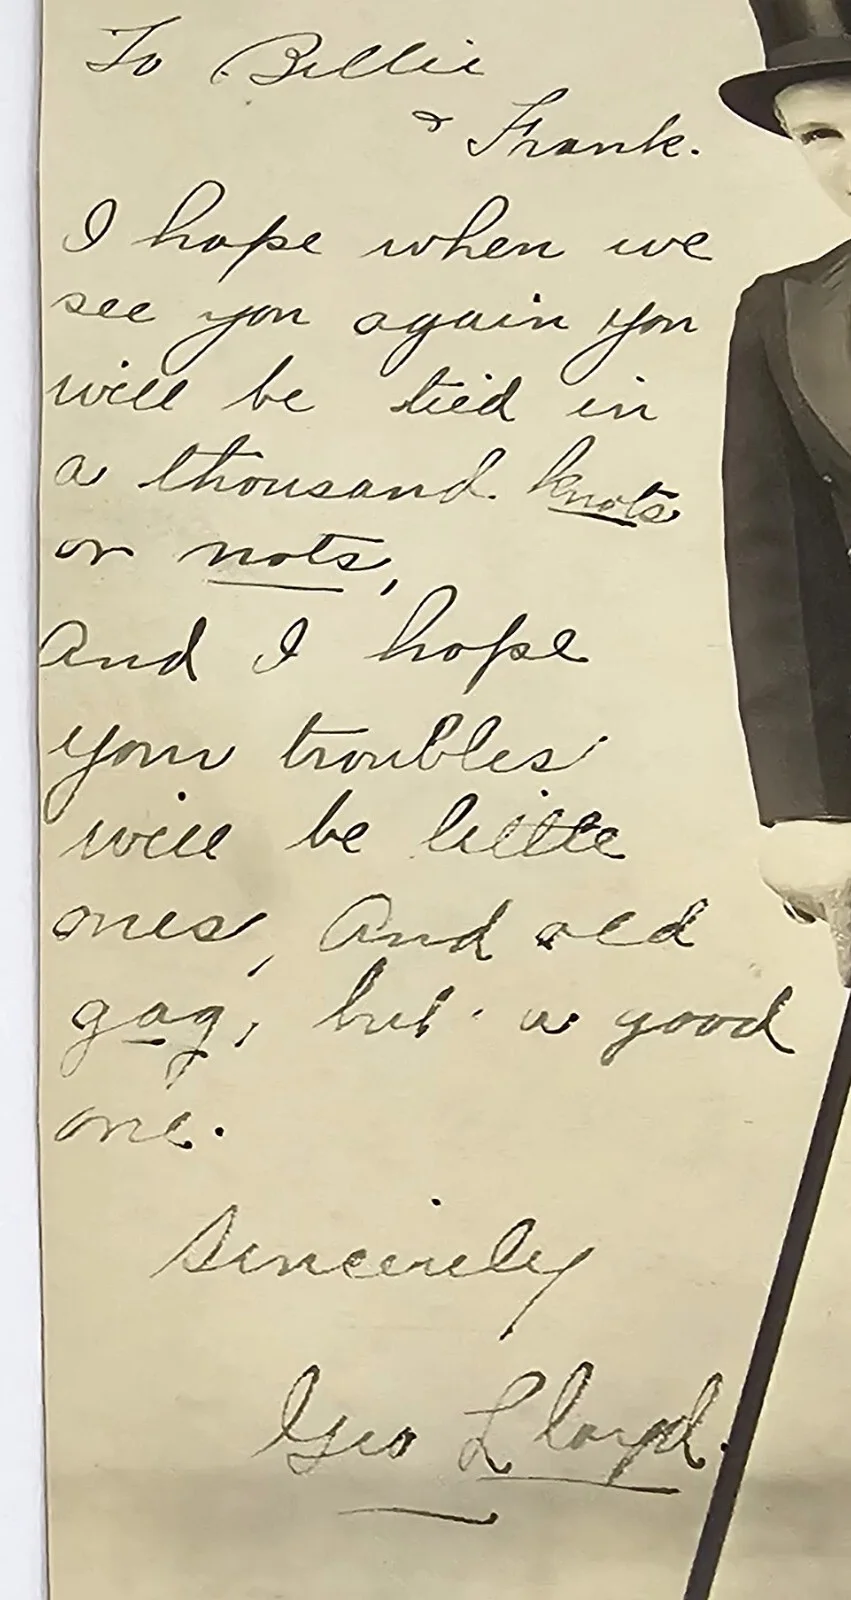 To Billie
& Frank.
I hope when we
see you again you
will be tied in
a thousand knots
or nots,
And I hope
your troubles
will be little
ones, And old
gag, but a good
one.
Sincerely
Geo Lloyd.